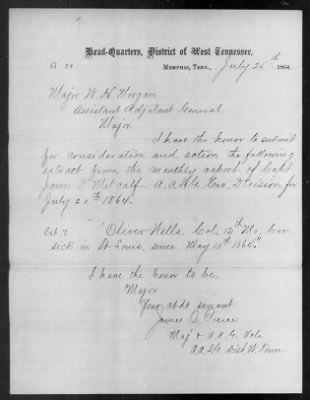 Head-Quarters, District of West Tennessee,
A. 28
Memphis, Tenn., July 26th 1864.
Major W. H. Morgan
Assistant Adjutant General.
Major.
I have the honor to submit
for consideration and action the following
extract from the monthly report of Capt
James P. Metcalf A.A.I.G. Cav. Division for
July 20th 1864.
"Oliver Wells, Col. 12th Mo. Cav.
sick in St Louis, since May 10th 1864."
I have the honor to be.
Major
Your obdt servant
James Pierce
Maj & A.A.G. Vols
A.A.I.G. Dist W. Tenn